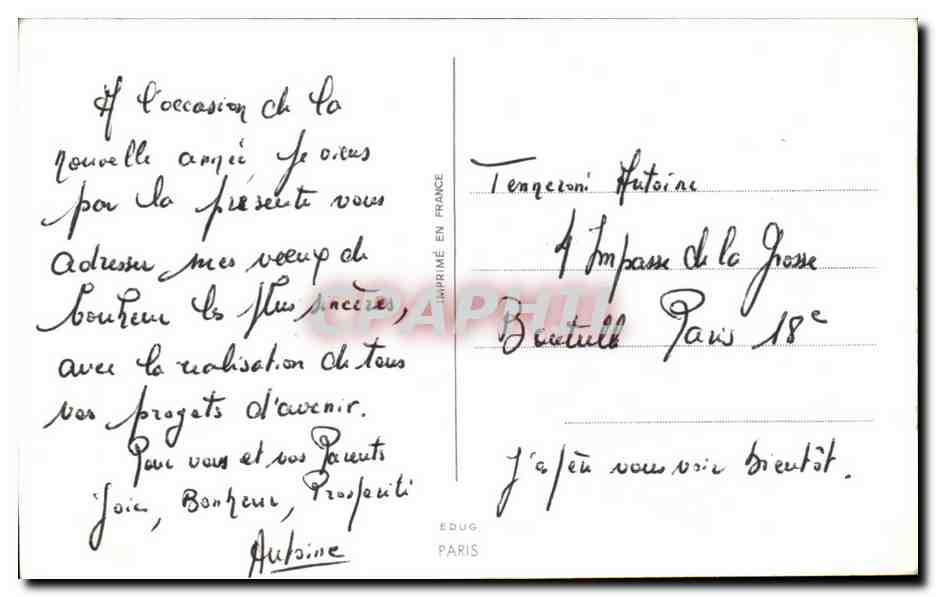 A l'occasion de la
nouvelle année, je viens
par la présente vous
adresser mes voeux de
bonheur les plus sincères,
avec la realisation de tous
vos progets d'avenir.
Pour vous et vos Parents
Joie, Bonheur, Prosperité
Antoine
IMPRIMÉ EN FRANCE
EDUG
PARIS
CPAPHIL
Antoine
Impasse de la Grosse
Bouteille Paris 18e
J'espère vous voir bientôt.